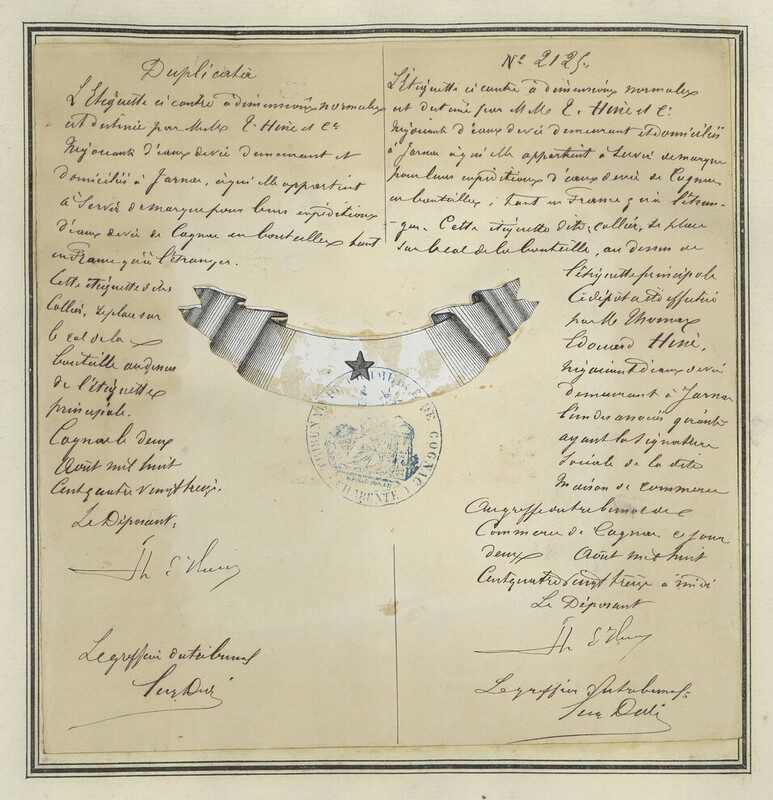 Duplicata
L'Etiquette ci contre à dimensions normales
est destinée par M.M. T. Hine et Cie
Négociants d'eaux de vie demeurant et
domiciliés à Jarnac, à qui elle appartient
à Servir de marque pour leurs expéditions
d'eaux de vie de Cognac en bouteilles tant
en France qu'à l'étranger.
Cette étiquette dite
Collier, se place sur
le col de la
bouteille au dessus
de l'étiquette
principale.
Cognac le deux
Août mil huit
Cent quatre vingt treize.
Le Déposant,
Th E Hine
Le greffier du tribunal
No 2125.
L'étiquette ci contre à dimensions normales
est destinée par M.M. T. Hine et Cie
Négociants d'eaux de vie demeurant et domiciliés
à Jarnac à qui elle appartient à Servir de marque
pour leurs expéditions d'eaux de vie de Cognac
en bouteilles, tant en France qu'à l'étran-
ger. Cette étiquette dite, collier, se place
sur le col de la bouteille, au dessus de
l'étiquette principale
Ce dépôt a été effectué
par Mr Thomas
Edouard Hine,
négociant d'eaux de vie
demeurant à Jarnac
l'un des associés gérants
ayant la signature
Sociale de la dite
Maison de commerce
Au greffe du tribunal de
Commerce de Cognac, ce jour
deux Août mil huit
Cent quatre vingt treize à midi
Le Déposant
Th E Hine
Le greffier du tribunal
TRIBUNAL DE COMMERCE DE COGNAC
(CHARENTE)